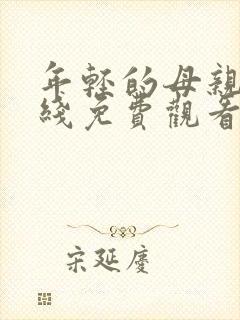 年轻的母親
綫免費觀看
宋延慶